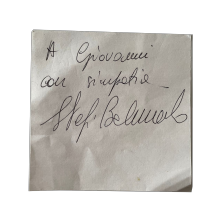 A Giovanni
con simpatia
Stef.